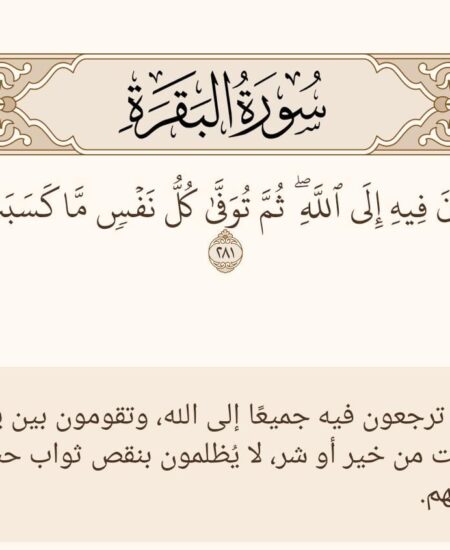 سُورَةُ البَقَرَةِ
فِيهِ إِلَى ٱللَّهِۖ ثُمَّ تُوَفَّىٰ كُلُّ نَفۡسٖ مَّا
٢٨١
ترجعون فيه جميعًا إلى الله، وتقومون بين
من خير أو شر، لا يُظلمون بنقص ثواب